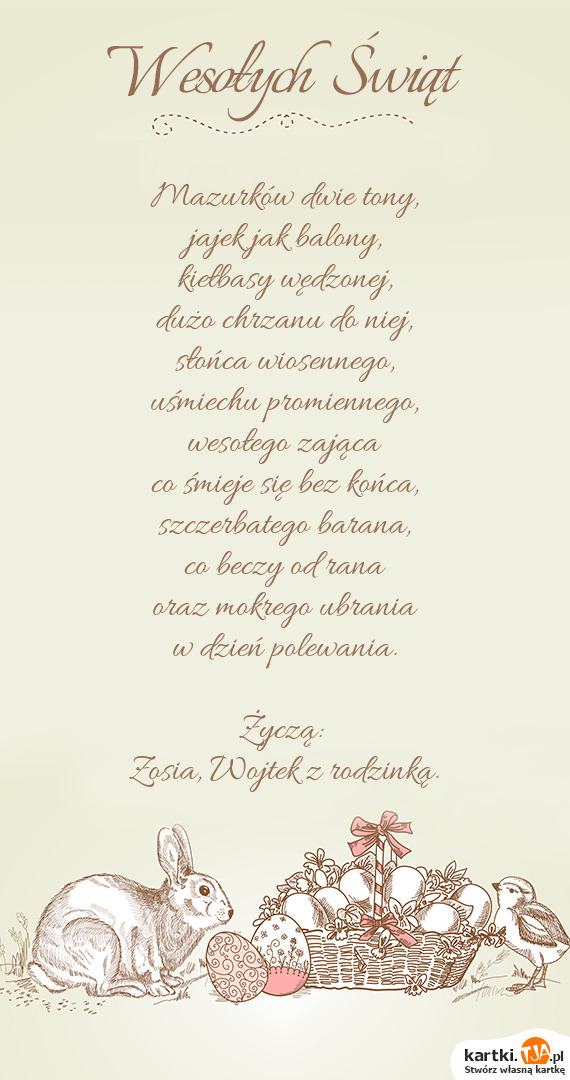 Wesołych Świąt
Mazurków dwie tony,
jajek jak balony,
kiełbasy wędzonej,
dużo chrzanu do niej,
słońca wiosennego,
uśmiechu promiennego,
wesołego zająca
co śmieje się bez końca,
szczerbatego barana,
co beczy od rana
oraz mokrego ubrania
w dzień polewania.
Życzą:
Zosia, Wojtek z rodzinką.
kartki.TJA.pl
Stwórz własną kartkę